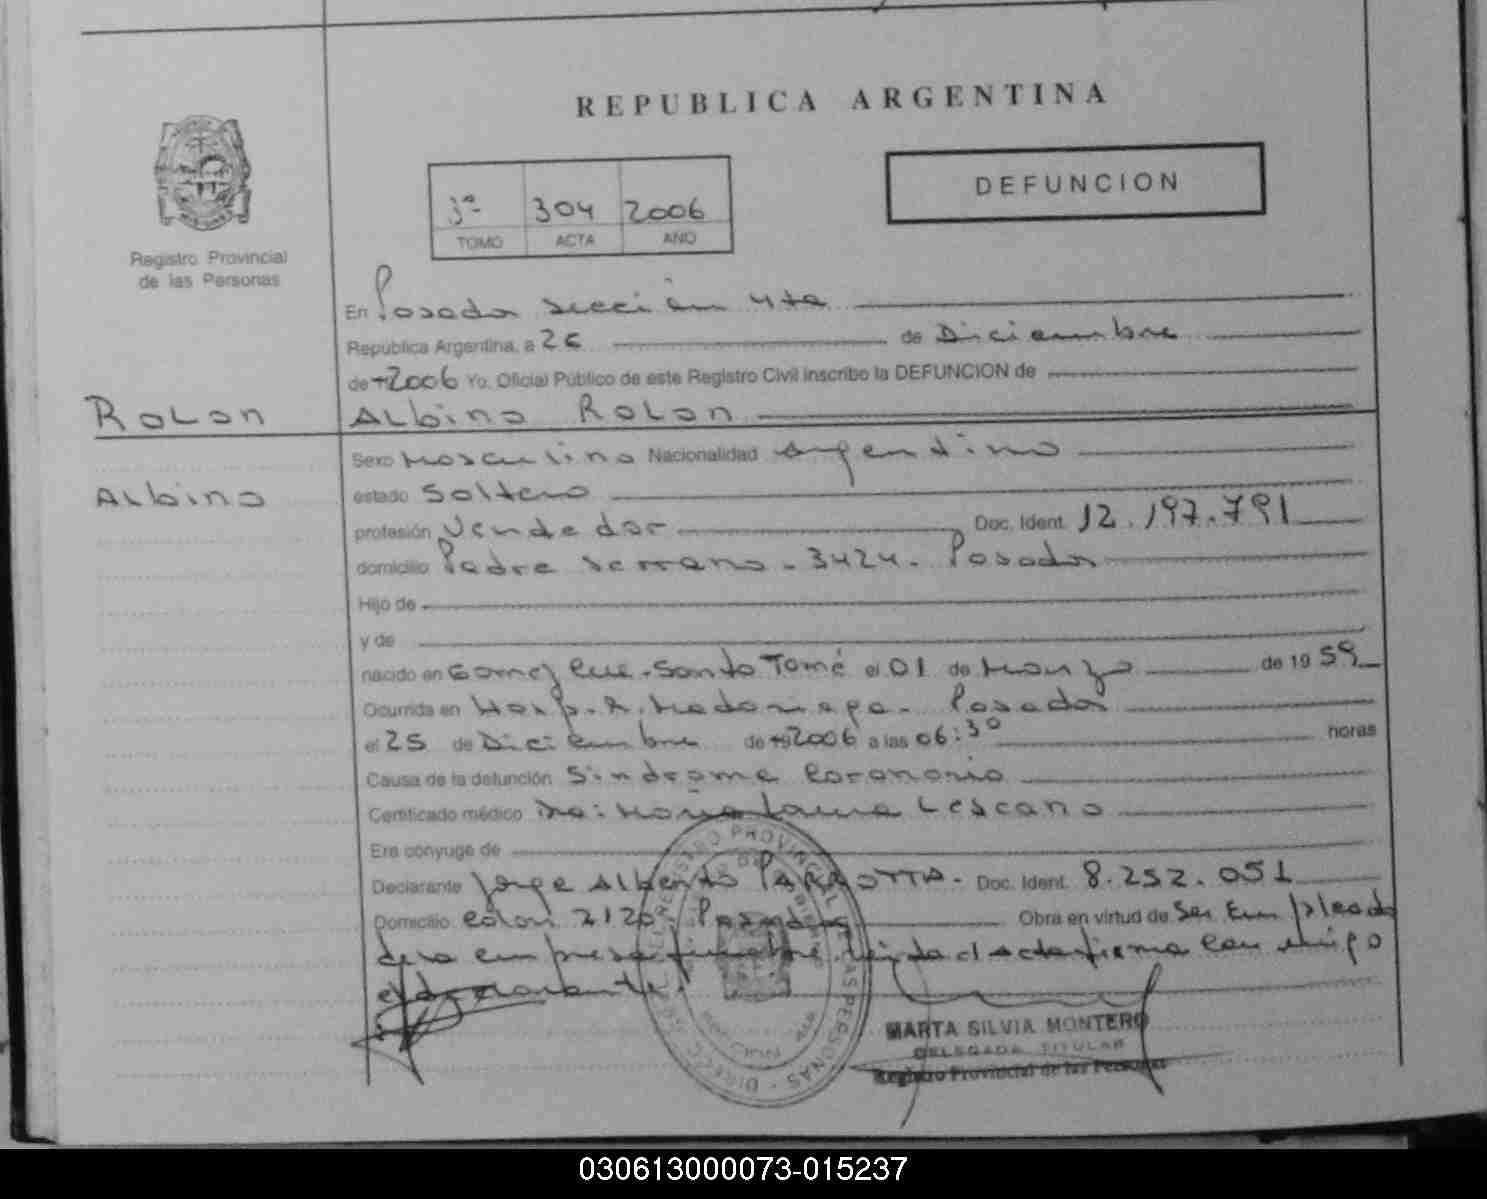 REPUBLICA ARGENTINA
DEFUNCION
3º 304 2006
TOMO ACTA AÑO
Registro Provincial
de las Personas
En Posadas sección 4ta
República Argentina, a 26 de Diciembre
de 2006 Yo, Oficial Público de este Registro Civil inscribo la DEFUNCION de
Rolon Albino Rolon
Sexo Masculino Nacionalidad Argentino
Albino estado Soltero
profesión Vendedor Doc. Ident. 12.197.791
domicilio Padre Serrano - 3424 - Posadas
Hijo de
y de
nacido en Santo Tomé el 01 de Marzo de 1959
Ocurrida en Hosp. R. Madariaga - Posadas
el 25 de Diciembre de 2006 a las 06:30 horas
Causa de la defunción Sindrome Coronario
Certificado médico Dra: Maria Laura Lescano
Era conyuge de
Declarante Jorge Alberto PARROTTA - Doc. Ident. 8.252.051
Domicilio Colon 2120 - Posadas Obra en virtud de Ser Empleado
de la empresa funebre. leida el acta firma con migo
el declarante.
REGISTRO PROVINCIAL DE LAS PERSONAS
MARTA SILVIA MONTERO
DELEGADA TITULAR
Registro Provincial de las Personas
030613000073-015237